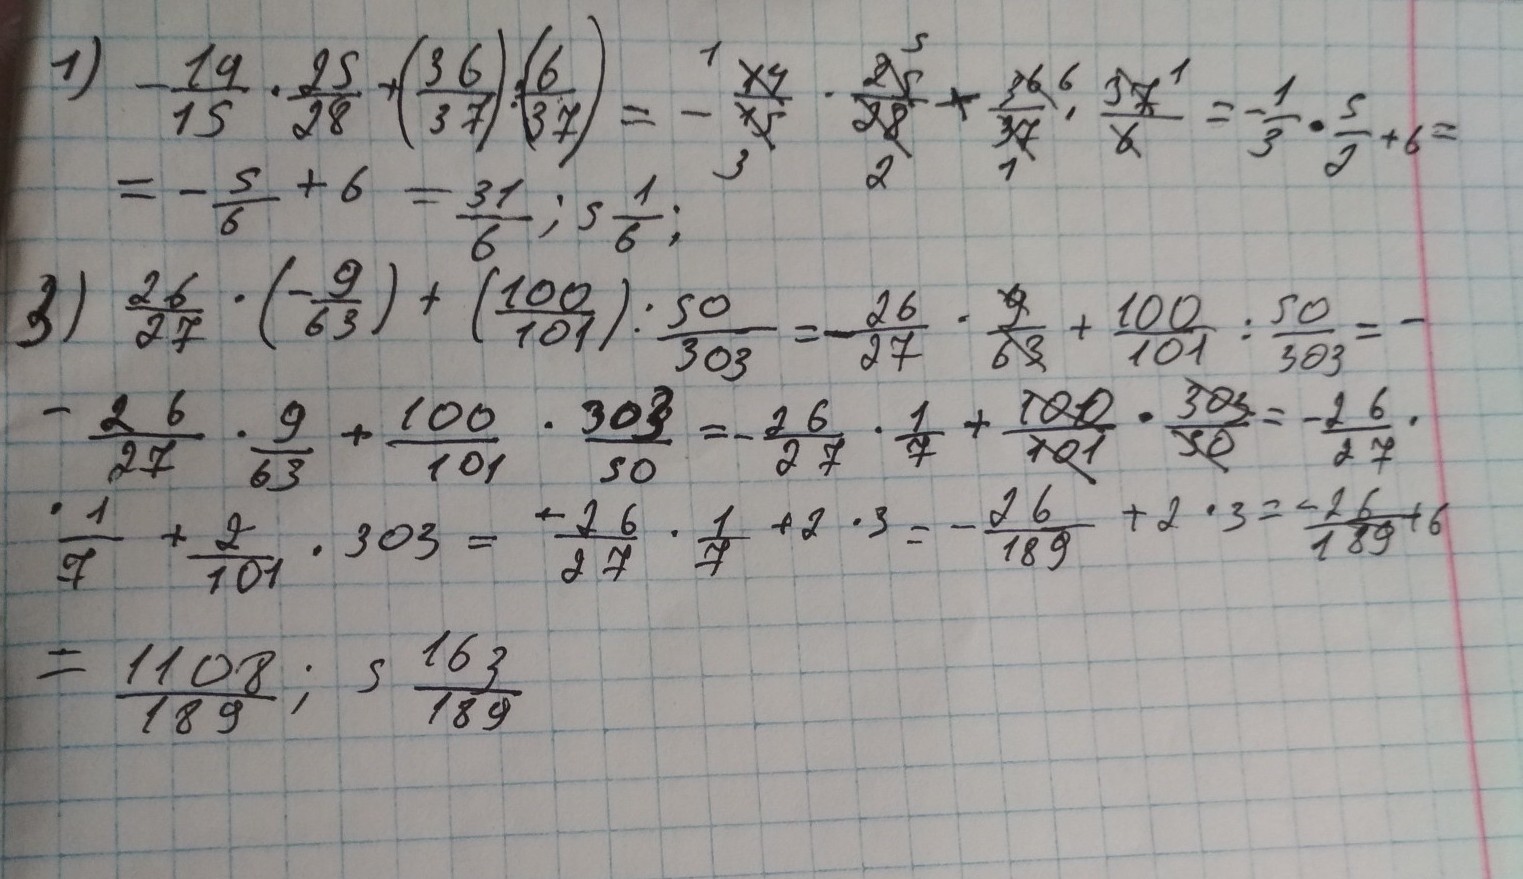 1) -19/15 · 25/28 + (36/37) : (6/37) = - 1 14/15 3 · 25/28 5 2 + 36/37 6 1 · 37/6 1 = -1/3 · 5/2 + 6 =
= -5/6 + 6 = 31/6 ; 5 1/6 ;
3) 26/27 · (-9/63) + (100/101) : 50/303 = -26/27 · 9/63 + 100/101 : 50/303 = -
- 26/27 · 9/63 + 100/101 · 303/50 = -26/27 · 1/7 + 100/101 · 303/50 = -26/27 ·
· 1/7 + 2/101 · 303 = -26/27 · 1/7 + 2 · 3 = -26/189 + 2 · 3 = -26/189 + 6
= 1108/189 ; 5 163/189